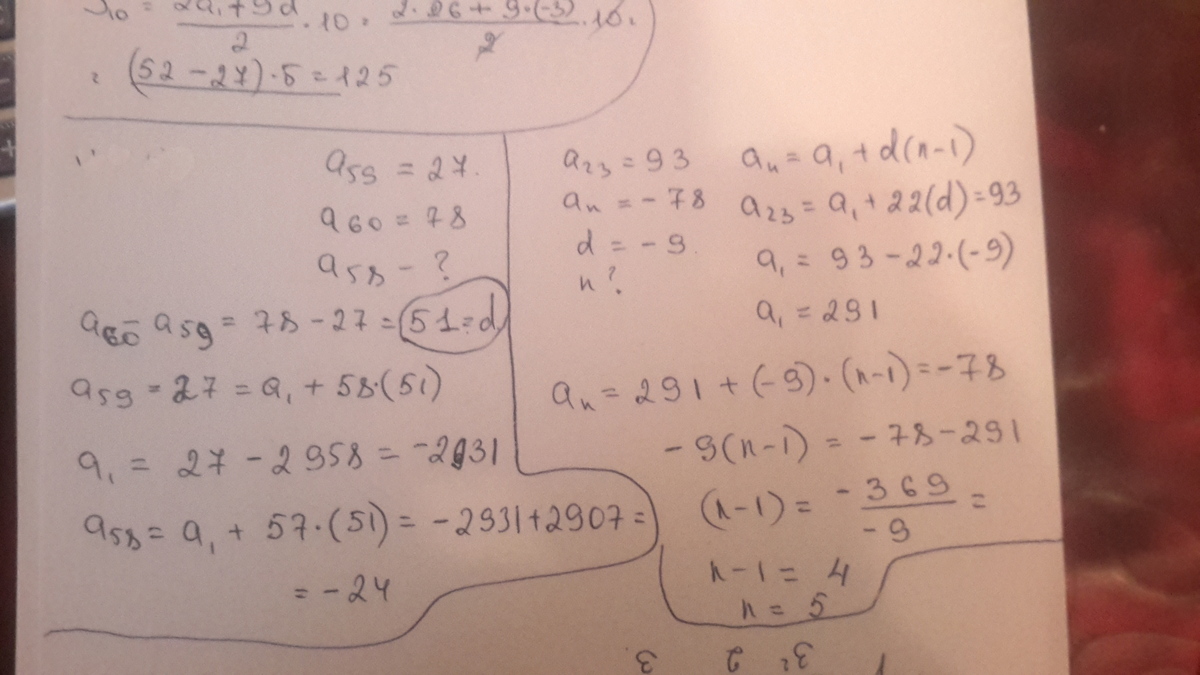 S₁₀ = (2a₁+9d)/2 · 10 = (2·26+9·(-3))/2 · 10 =
= (52-27)·5=125
a₅₉ = 27.
a₆₀ = 78
a₅₈ - ?
a₆₀ - a₅₉ = 78-27 = 51=d
a₅₉ = 27 = a₁ + 58·(51)
a₁ = 27 - 2958 = -2931
a₅₈ = a₁ + 57·(51) = -2931+2907=
= -24
a₂₃ = 93
aₙ = -78
d = -9
n?
aₙ = a₁ + d(n-1)
a₂₃ = a₁ + 22(d)=93
a₁ = 93-22·(-9)
a₁ = 291
aₙ = 291 + (-9)·(n-1)=-78
-9(n-1) = -78-291
(n-1) = -369/-9 =
n-1 = 4
n = 5